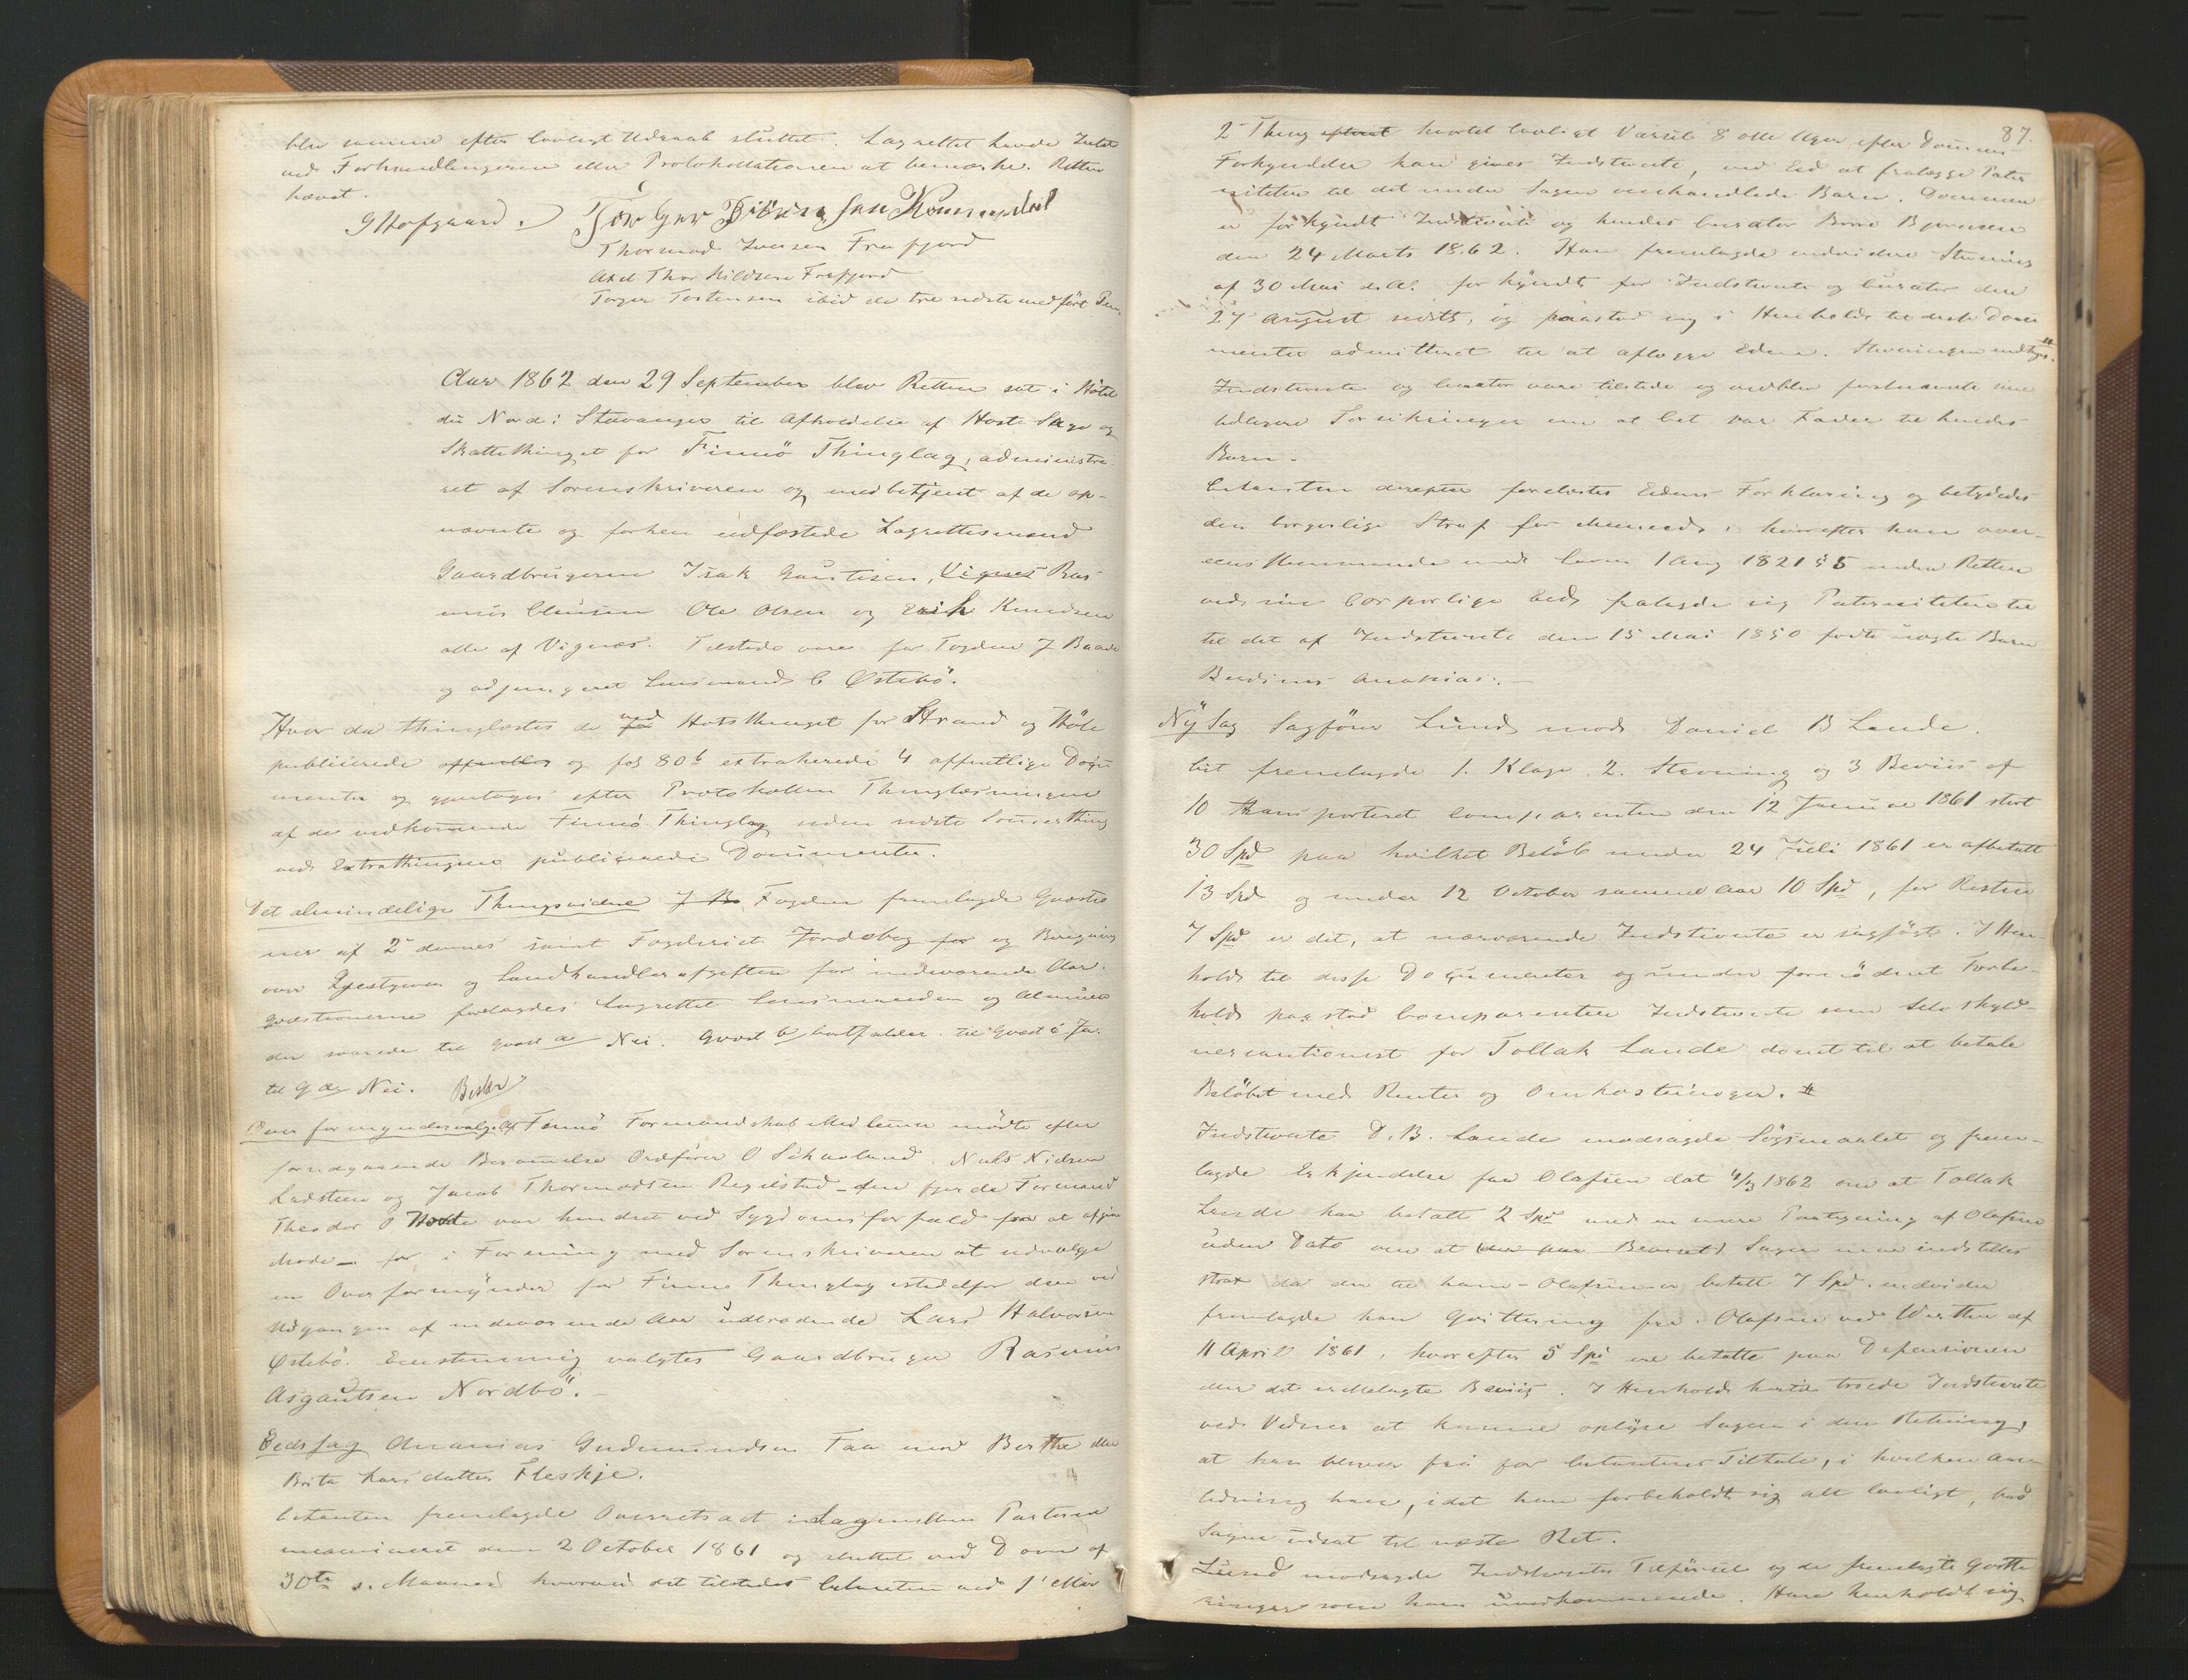 blev samme efter lovligt Udraab sluttet. Lagrettet havde Intet
ved Forhandlingerne eller Protokollationen at bemærke. Retten
hævet.
G Hofgaard.
Thormod Iversen Frafjord
Axel Thorkildsen Frafjord
Torger Tostensen ibid de tre sidste med ført Pen.
Aar 1862 den 29 September blev Retten sat i Hôtel
du Nord i Stavanger til Afholdelse af Høst Sage og
Skattethinget for Finnö Thinglag, administre-
ret af Sorenskriveren og medbetjent af de op-
nævnte og forhen edfæstede Lagrettesmænd
Gaardbrugerne Isak Gautesen, Vignes Ras-
mus Clausen Ole Olsen og Erik Knudsen
alle af Vignæs. Tilstede vare for Fogden J Baade
og adjungeret Lensmand C Østebö.
Hvor da thinglæstes de ved Høstthinget for Strand og Höle
publicerede og fol 80 b extraherede 4 offentlige Docu-
menter og gjentoges efter Protokollen Thinglæsningen
af de vedkommende Finnö Thinglag siden sidste Sommerthing
ved Extrathingene publicerede Documenter.
Det almindelige Thingsvidne J Ba Fogden fremlagde Qvæstio-
ner af 2 dennes samt Fogderiets Jordebog for og Beregning
over og Landhandlerafgiften for indeværende Aar.
Qvæstionerne forelagdes Lagrettet Lensmanden og Almuen
der svarede til Qvæst a Nei. Qvæst b bortfalder. til Qvæst c Ja.
til Q. d Nei.
Overformyndervalg. Af Finnö Formandskab Medlemmer mödte efter
foregaaende Berammelse Ordfører O Schanland. Niels Nielsen
Ladsteen og Jacob Thormodsen Reilstad - den fjerde Formand
Theodor O var hindret ved Sygdomsforfald fra at afgive
Møde - for i Forening med Sorenskriveren at udvælge
en Overformynder for Finnö Thinglag istedetfor den ved
Udgangen af indeværende Aar udtrædende Lars Halvorsen
Østebö. Eenstemmig valgtes Gaardbruger Rasmus
Asgautsen Nordbö.
Eedssag Ananias Gudmundsen Faa mod Berthe eller
Brita Larsdatter Fleskje.
Citanten fremlagde Overretsact i Sagen mellem Parterne
den 2 October 1861 og sluttet ved Dom af
30te s. Maaned hvorved det tilstedes Citanten ved 1' eller
87.
2' Thing efterat hvortil lovligt Varsel 8 otte Uger efter Dommens
Forkyndelse kan gives Indstevnte, ved Eed at fralægge Pater-
niteten til det under Sagen omhandlede Barn. Dommen
er forkyndt Indstevnte og hendes Curator Bjørnsen
den 24 Marts 1862. Han fremlagde endvidere Stevning
af 30 Mai d.A. forkyndt for Indstevnte og Curator den
27 August sidstl, og paastod sig i Henhold til disse Docu-
menter admitteret til at aflægge Eden. Stevningen indtages.
Indstevnte og Curator vare tilstede og vedblev førstnævnte sine
tidligere Forsikringer om at Cit var Fader til hendes
Barn.
Citanten derefter forelæstes Edens Forklaring og betydedes
den borgerlige Straf for Meneed, hvorefter han over-
eensstemmende med Loven 1 Aug 1821 § 5 inden Retten
ved sin Corporlige Eed fralagde sig Paterniteten til
til det af Indstevnte den 15 Mai 1850 fødte uægte Barn
Berdines Ananias. -
Ny Sag Sagförer Lund mod Daniel B Lande.
Cit fremlagde 1. Klage 2. Stevning og 3 Beviis af
10 transporteret Comparenten den 12 Januar 1861 stort
30 Spd paa hvilket Beløb under 24 Juli 1861 er afbetalt
13 Spd og under 12 October samme Aar 10 Spd, for Resten
7 Spd er det, at nærværende Indstevnte er sagsögt. I Hen-
hold til disse Documenter og under fornødent Forbe-
hold paastod Comparenten Indstevnte som Selvskyld-
nercautionist for Tollak Lande dømt til at betale
Belöbet med Renter og Omkostninger. #
Indstevnte D. B. Lande modsagde Sögsmaalet og frem-
lagde Erkjendelse fra Olafsen dat 1862 om at Tollak
Lande har betalt 2 Spd med en mere Paategning af Olafsen
uden Dato om at (der paa Beviset) Sagen maa indstilles
strax da der til ham - Olafsen - er betalt 7 Spd. endvidere
fremlagde han Qvittering fra Olafsen ved Werther af
11 April 1861, hvorefter 5 Spd ere betalte paa
eller det ermeldte Beviis. I Henhold hertil troede Indstevnte
ved Vidner at kunne oplyse Sagen i den Retning,
at han bliver fri for Citantens Tiltale, i hvilken An-
ledning han, idet han forbeholdt sig alt lovligt, bad
Sagen udsat til næste Ret.
Lund modsagde Indstevntes Tilførsel og de fremlagte Qvitte-
ringer som ham uvedkommende. Han henholdt sig